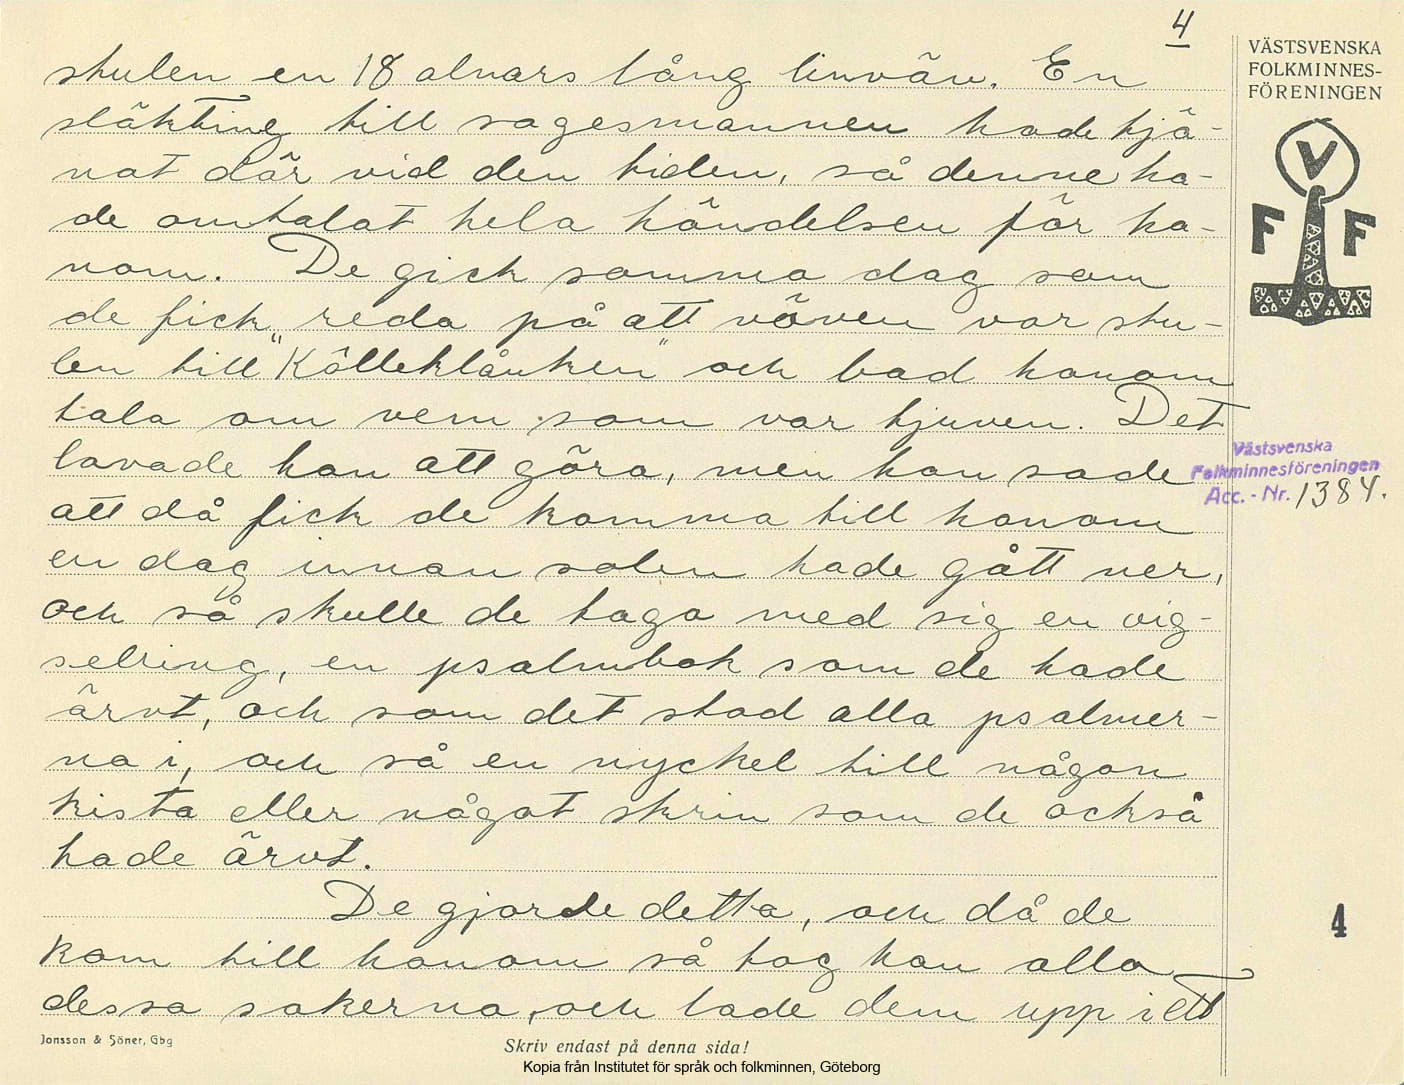 4
VÄSTSVENSKA
FOLKMINNES-
FÖRENINGEN
V
F F
stulen en 18 alnars lång linväv. En
släkting till sagesmannen hade tjä-
nat där vid den tiden, så denne ha-
de omtalat hela händelsen för ho-
nom. De gick samma dag som
de fick reda på att väven var stu-
len till "Kölleklånken" och bad honom
tala om vem som var tjuven. Det
lovade han att göra, men han sade
att då fick de komma till honom
en dag innan solen hade gått ner,
och så skulle de taga med sig en vig-
selring, en psalmbok som de hade
ärvt, och som det stod alla psalmer-
na i, och så en nyckel till någon
kista eller något skrin som de också
hade ärvt.
De gjorde detta, och då de
kom till honom så tog han alla
dessa sakerna, och lade dem upp i ett
Västsvenska
Folkminnesföreningen
Acc. - Nr. 1384.
4
Jonsson & Söner, Gbg
Skriv endast på denna sida!
Kopia från Institutet för språk och folkminnen, Göteborg